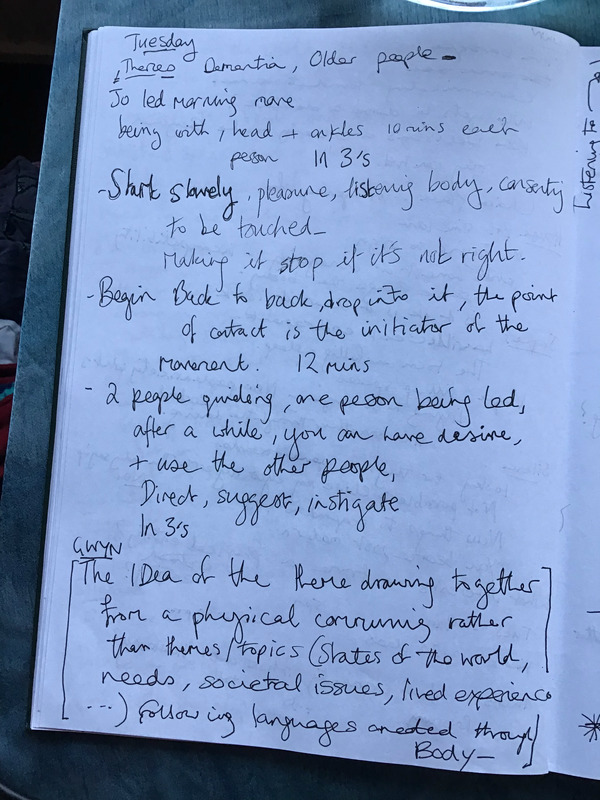 Tuesday
Themes Demantia, Older people -
Jo led morning move
being with, head + ankles 10 mins each
person In 3's
- Start slowly, pleasure, listening body, consenting
to be touched -
Making it stop if it's not right.
- Begin Back to back, drop into it, the point
of contact is the initiator of the
movement. 12 mins
- 2 people guiding, one person being led,
after a while, you can have desire,
+ use the other people,
Direct, suggest, instigate
In 3's
GWYN
[The IDea of the theme drawing together
from a physical communing rather
than themes/topics (States of the world,
needs, societal issues, lived experience
...) Following languages created through
Body -]
Listening to